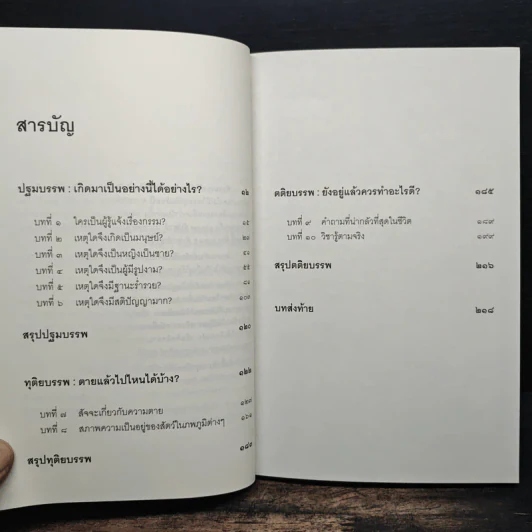 สารบัญ
ปฐมบรรพ : เกิดมาเป็นอย่างนี้ได้อย่างไร? ๑๒
บทที่ ๑ ใครเป็นผู้รู้แจ้งเรื่องกรรม? ๑๕
บทที่ ๒ เหตุใดจึงเกิดเป็นมนุษย์? ๒๐
บทที่ ๓ เหตุใดจึงเป็นหญิงเป็นชาย? ๔๑
บทที่ ๔ เหตุใดจึงเป็นผู้มีรูปงาม? ๕๕
บทที่ ๕ เหตุใดจึงมีฐานะร่ำรวย? ๘๑
บทที่ ๖ เหตุใดจึงมีสติปัญญามาก? ๑๐๐
สรุปปฐมบรรพ ๑๒๐
ทุติยบรรพ : ตายแล้วไปไหนได้บ้าง? ๑๒๒
บทที่ ๗ สัจจะเกี่ยวกับความตาย ๑๒๗
บทที่ ๘ สภาพความเป็นอยู่ของสัตว์ในภพภูมิต่างๆ ๑๖๑
สรุปทุติยบรรพ
ตติยบรรพ : ยังอยู่แล้วควรทำอะไรดี? ๑๘๕
บทที่ ๙ คำถามที่น่ากลัวที่สุดในชีวิต ๑๘๙
บทที่ ๑๐ วิชารู้ตามจริง ๑๙๙
สรุปตติยบรรพ ๒๑๖
บทส่งท้าย ๒๑๘